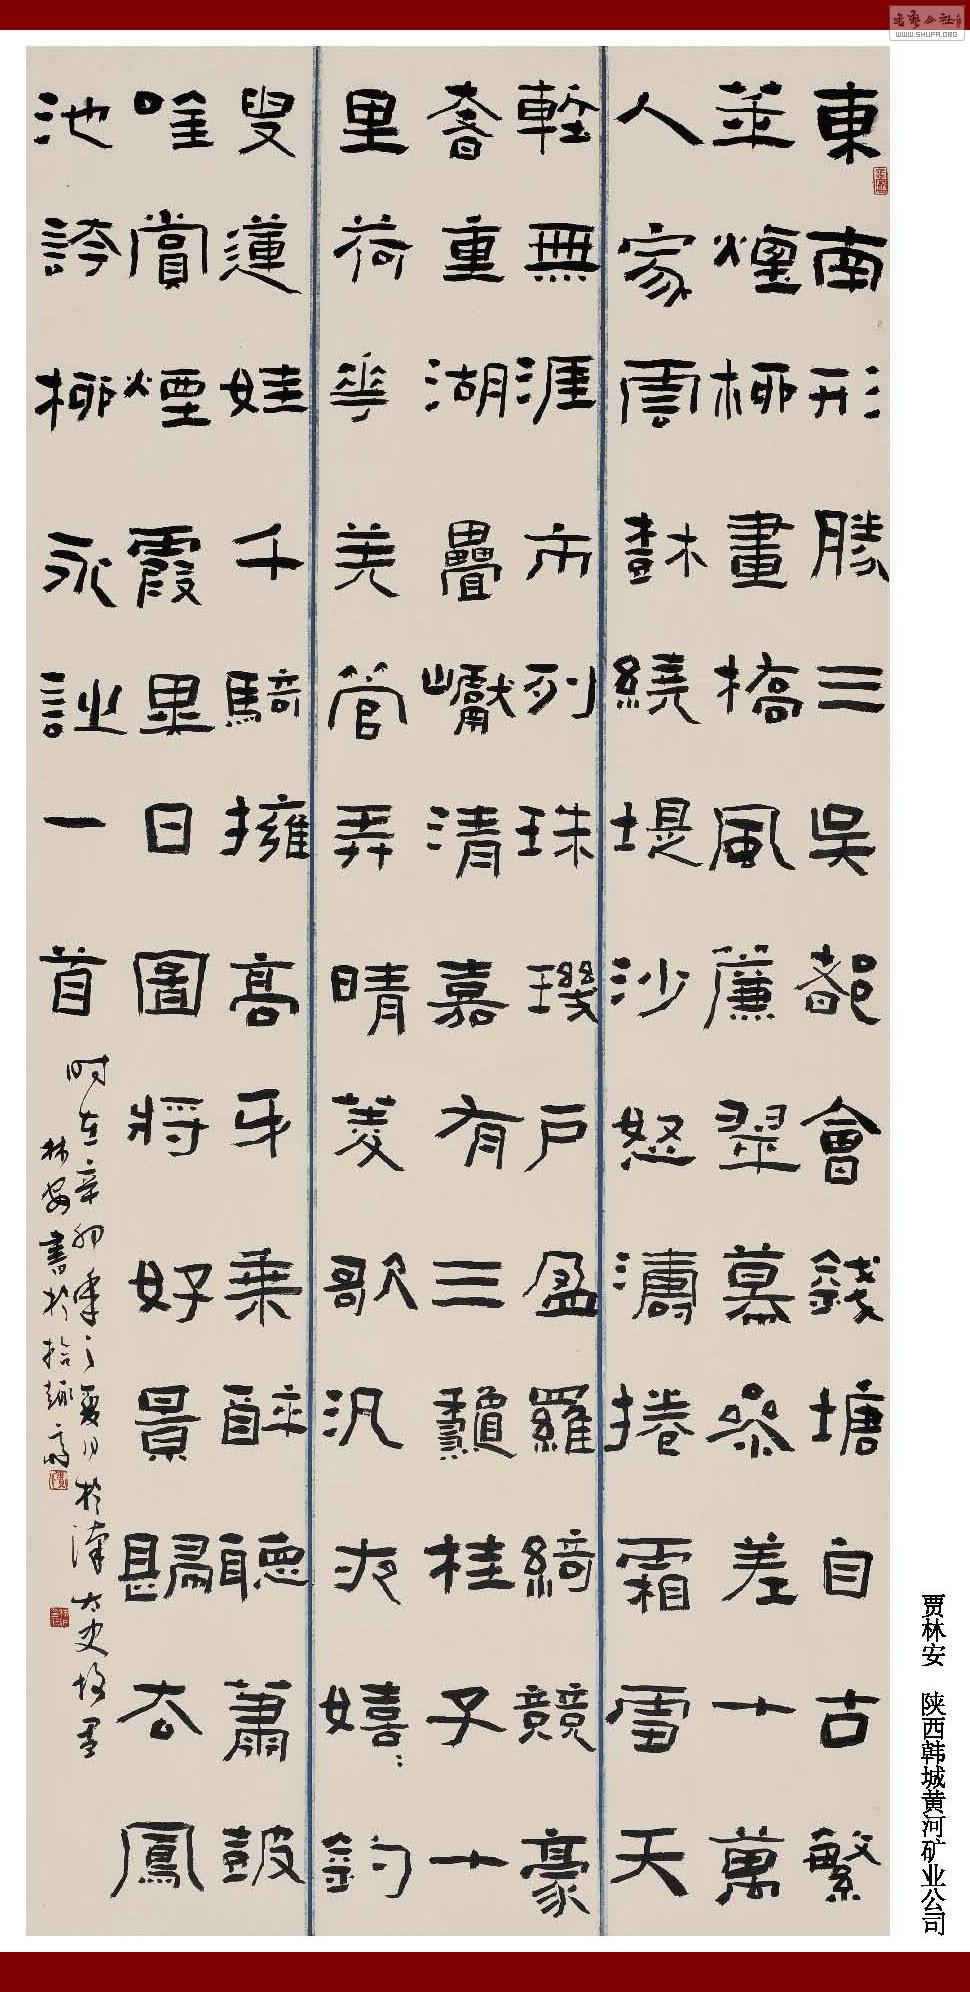 東南形勝三吳都會錢塘自古繁
華煙柳畫橋風簾翠幕參差十萬
人家雲樹繞堤沙怒濤捲霜雪天
塹無涯市列珠璣戶盈羅綺競豪
奢重湖疊巘清嘉有三秋桂子十
里荷花羌管弄晴菱歌汎夜嬉〻釣
叟蓮娃千騎擁高牙乘醉聽蕭鼓
唫賞煙霞異日圖將好景歸去鳳
池誇柳永詞一首
時在辛卯年之夏月於漢太史故里
林安書於拾趣齋
贾林安 陕西韩城黄河矿业公司
书艺公社
WWW.SHUFA.ORG